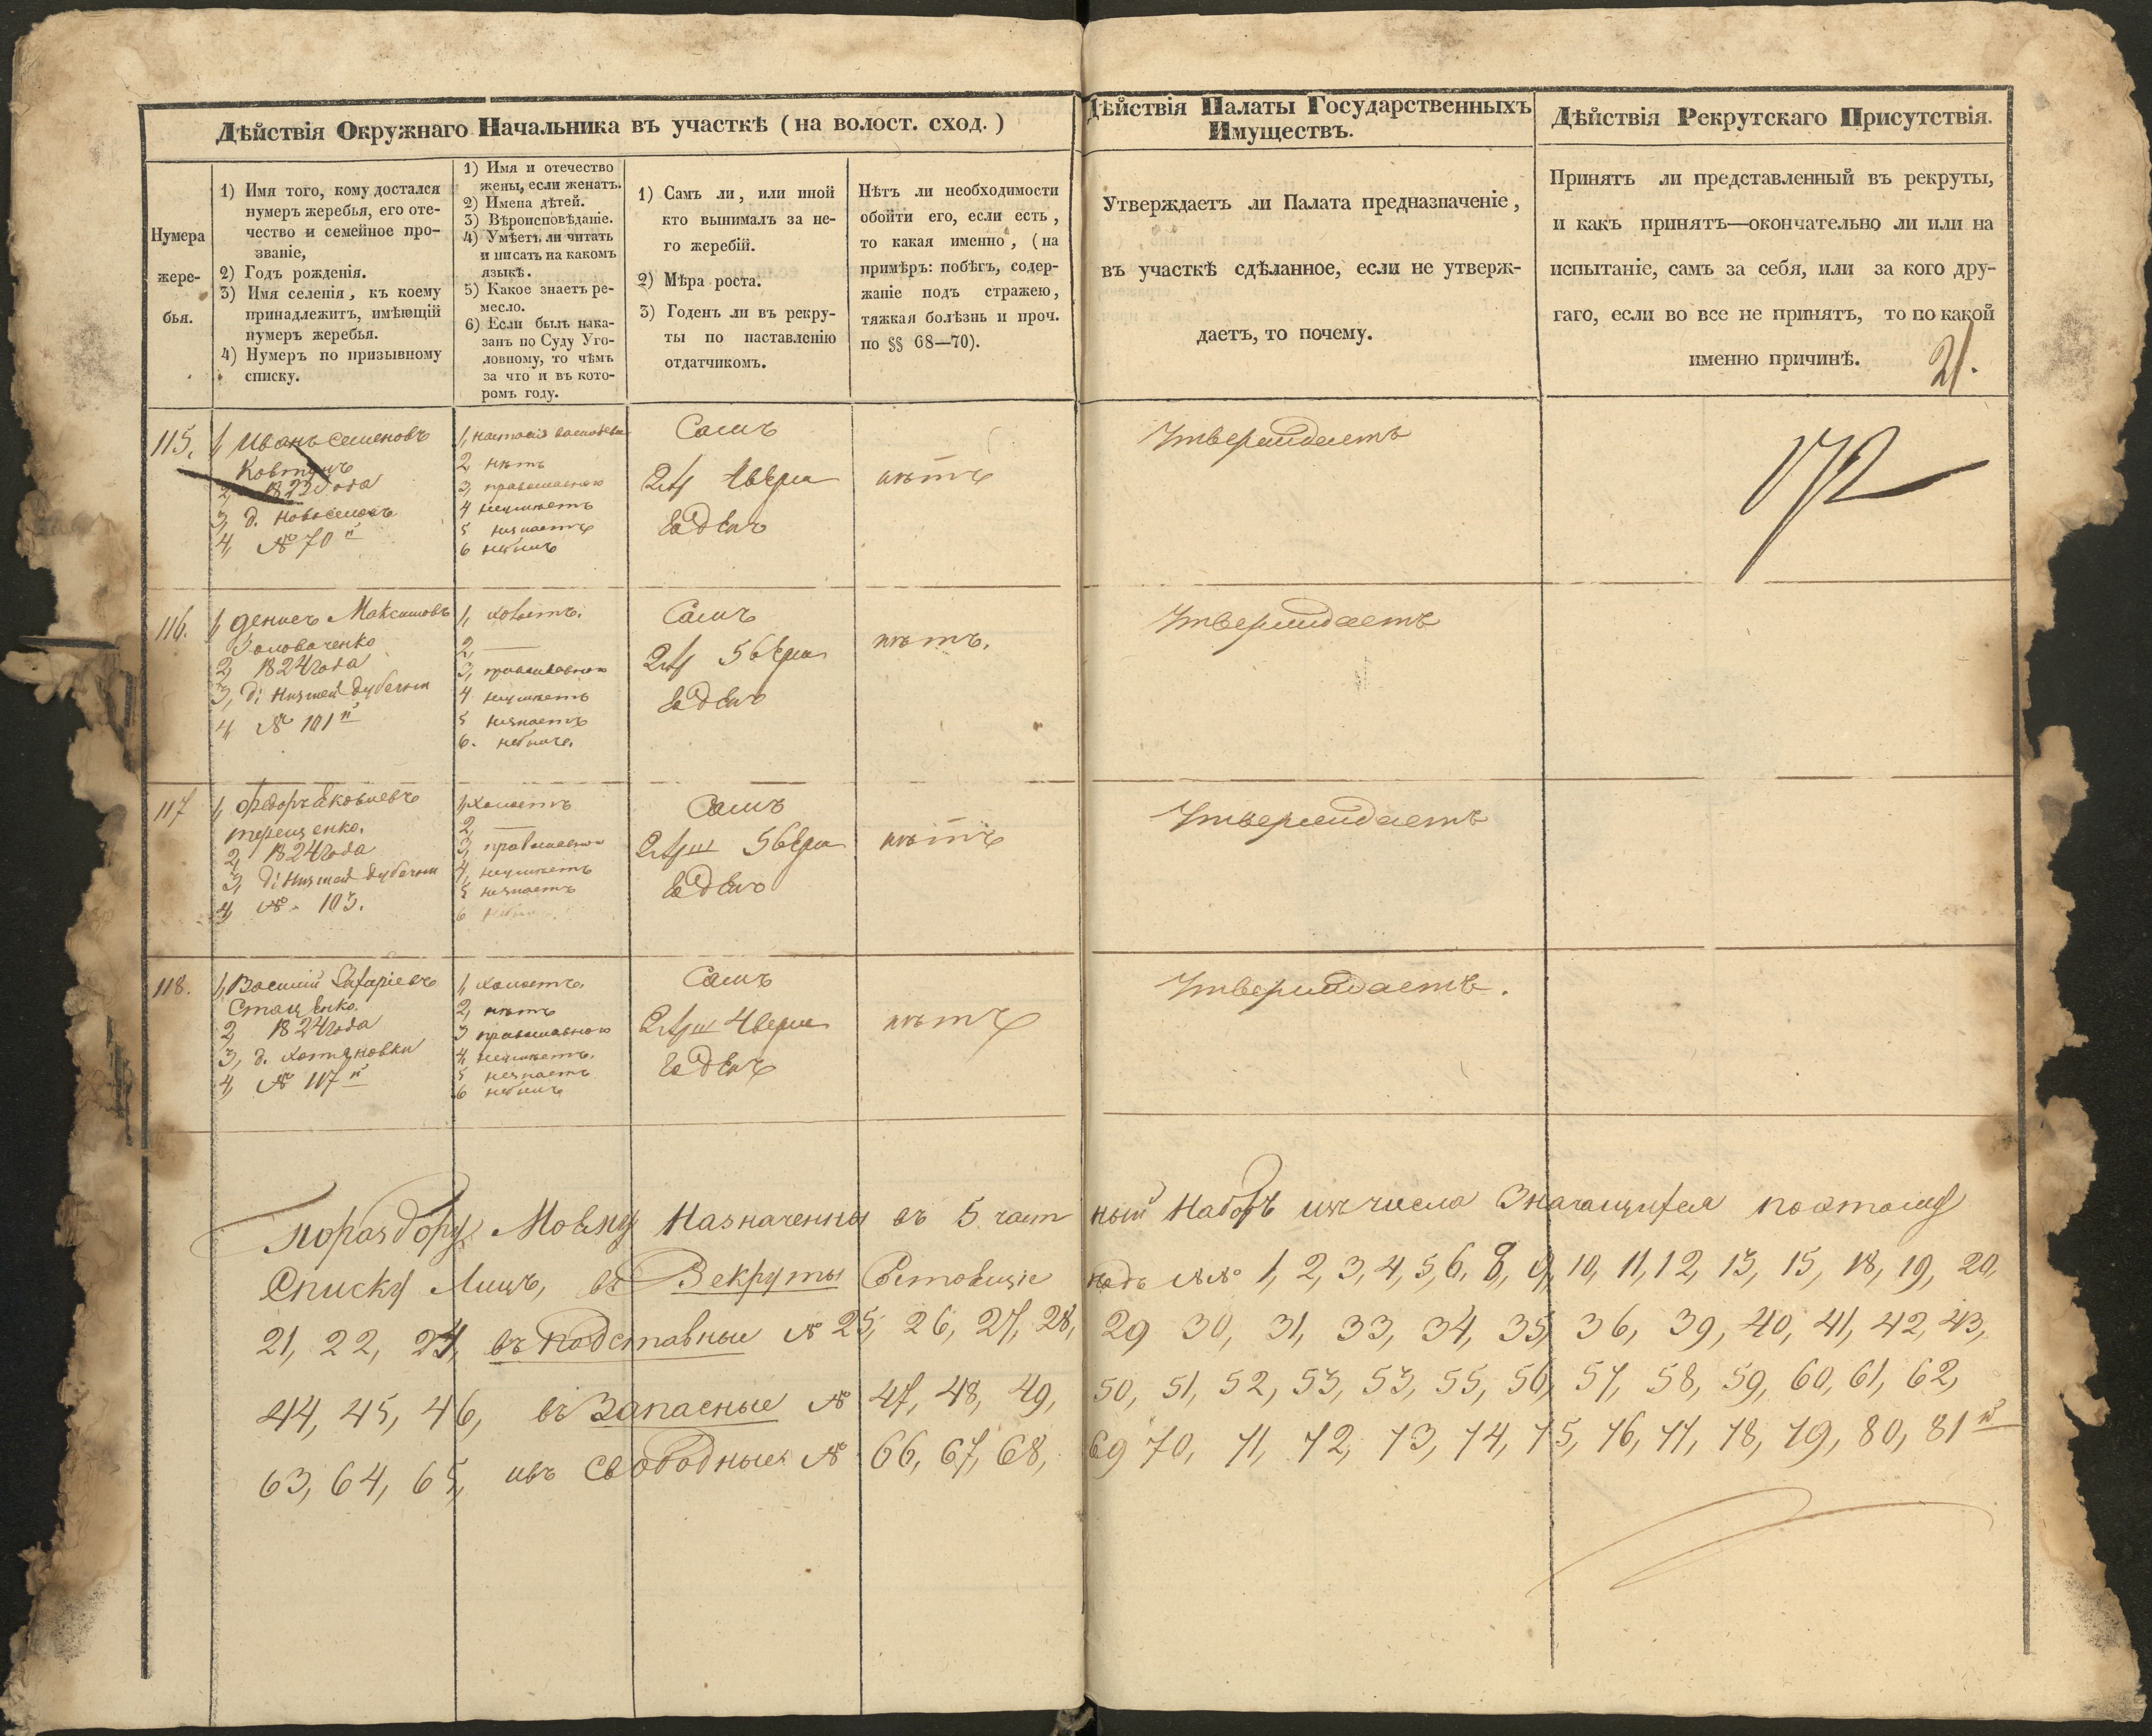 Дѣйствія Окружнаго Начальника въ участкѣ (на волост. сход.)
Нумера
жере-
бья.
1) Имя того, кому достался
нумеръ жеребья, его оте-
чество и семейное про-
званіе,
2) Годъ рожденія.
3) Имя селенія, къ коему
принадлежитъ, имѣющій
нумеръ жеребья.
4) Нумеръ по призывному
списку.
1) Имя и отечество
жены, если женатъ.
2) Имена дѣтей.
3) Вѣроисповѣданіе.
4) Умѣетъ ли читать
и писать на какомъ
языкѣ.
5) Какое знаетъ ре-
месло.
6) Если былъ нака-
занъ по Суду Уго-
ловному, то чѣмъ
за что и въ кото-
ромъ году.
1) Самъ ли, или иной
кто вынималъ за не-
го жеребій.
2) Мѣра роста.
3) Годенъ ли въ рекру-
ты по наставленію
отдатчикомъ.
Нѣтъ ли необходимости
обойти его, если есть,
то какая именно, (на
примѣръ: побѣгъ, содер-
жаніе подъ стражею,
тяжкая болѣзнь и проч.
по §§ 68—70).
Дѣйствія Палаты Государственныхъ
Имуществъ.
Утверждаетъ ли Палата предназначеніе,
въ участкѣ сдѣланное, если не утверж-
даетъ, то почему.
Дѣйствія Рекрутскаго Присутствія.
Принятъ ли представленный въ рекруты,
и какъ принятъ—окончательно ли или на
испытаніе, самъ за себя, или за кого дру-
гаго, если во все не принятъ, то по какой
именно причинѣ.
21.
115.
1, Иванъ Семеновъ
Ковтунъ
2, 1823 года
3, д. Новоселокъ
4, № 70й
1, настасія
2 нѣтъ
3, православного
4 неумѣетъ
5 незнаетъ
6 небылъ
Самъ
2 ар 4 верш
Годенъ
нѣтъ
Утверждаетъ
172
116.
1, Денисъ Максимовъ
Головаченко
2, 1824 года
3, д: Нижшей Дубечни
4, № 101й
1, холостъ.
2, —
3, православного
4 неумѣетъ
5 незнаетъ
6. небылъ.
Самъ
2 ар 5 верш
Годенъ
нѣтъ.
Утверждаетъ
117
1, Федоръ Яковлевъ
Терещенко.
2, 1824 года
3, д: Нижшей Дубечни
4, №. 103.
1, Холостъ
2, —
3, православного
4, неумѣетъ
5 незнаетъ
6 небылъ
Самъ
2 арш 5 верш
Годенъ
нѣтъ
Утверждаетъ
118.
1, Василій Захаріевъ
Стаценко.
2, 1824 года
3, д. Хотяновки
4, № 117й
1, Холостъ.
2, нѣтъ
3 православного
4, неумѣетъ.
5 незнаетъ
6 небылъ
Самъ
2 арш 4 верш
Годенъ
нѣтъ
Утверждаетъ.
поразбору Мовму Назначенны въ 5 част ный Наборъ изъ числа Значащихся поэтому
Списку Лицъ, въ Рекруты Состовщіе подъ №№ 1, 2, 3, 4, 5, 6, 8, 9, 10, 11, 12, 13, 15, 18, 19, 20,
21, 22, 24, въ подставные № 25, 26, 27, 28, 29 30, 31, 33, 34, 35, 36, 39, 40, 41, 42, 43,
44, 45, 46, въ Запасные № 47, 48, 49, 50, 51, 52, 53, 53, 55, 56, 57, 58, 59, 60, 61, 62,
63, 64, 65, ивъ Свободные № 66, 67, 68, 69 70, 71, 72, 73, 74, 75, 76, 77, 78, 79, 80, 81й